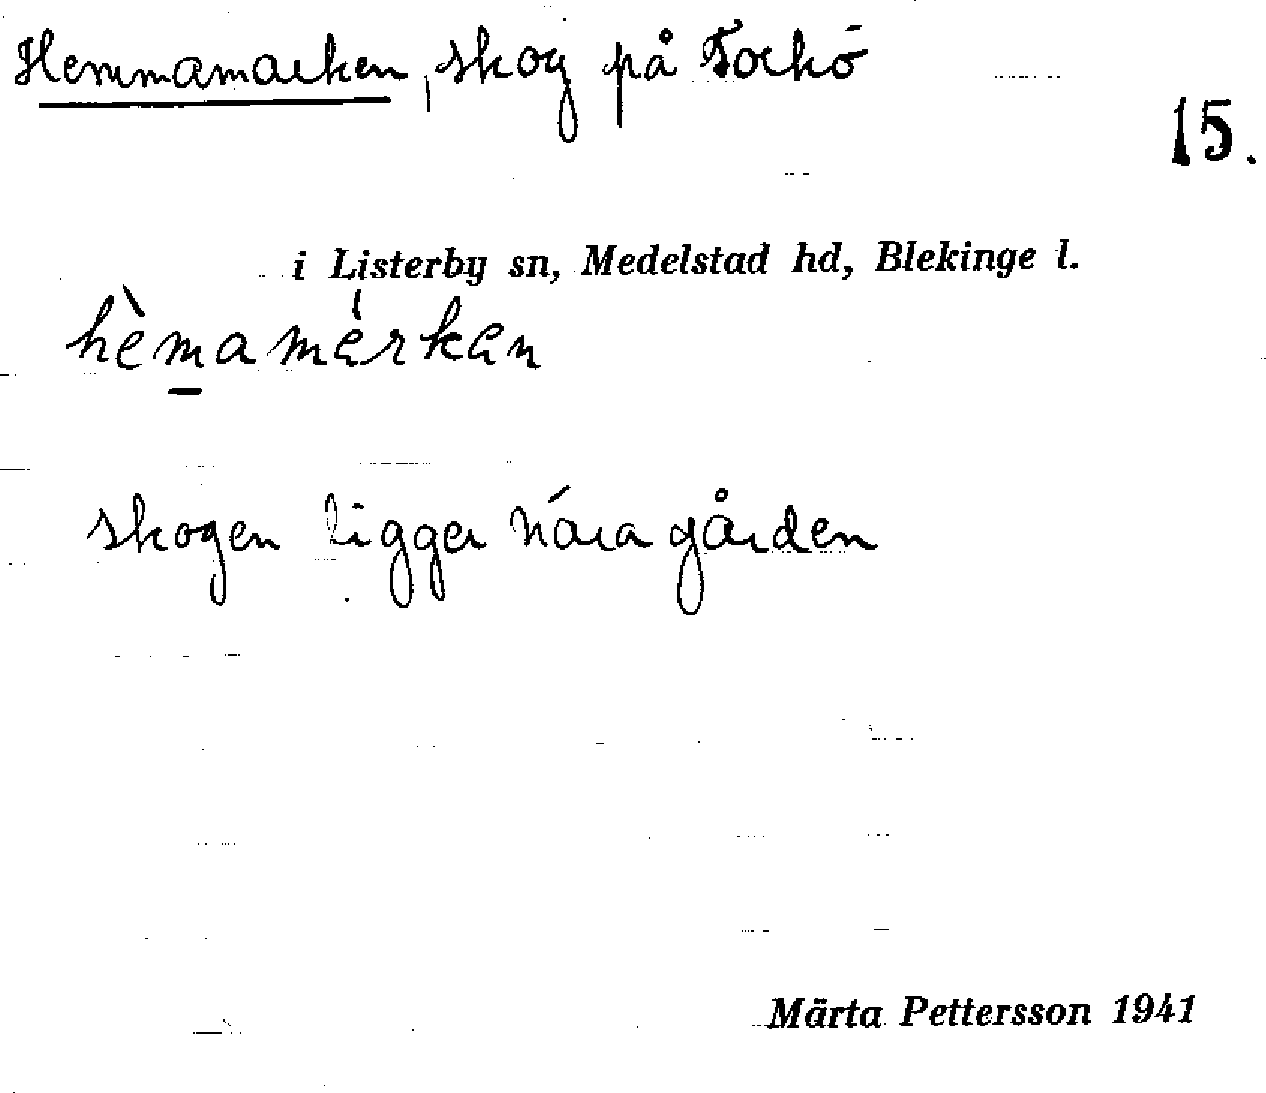 Hemmamarken, skog på Torkö
15.
i Listerby sn, Medelstad hd, Blekinge l.
hèmamárkan
skogen ligger nära gården
Märta Pettersson 1941